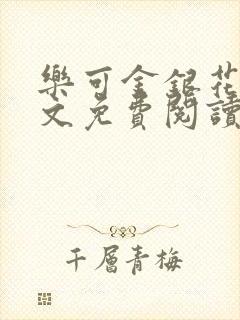 樂可金銀花
文免費閱讀
千層青梅